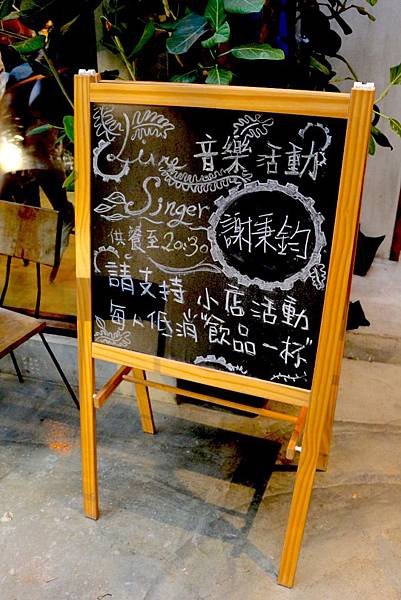 Live 音樂活動
Singer
謝秉鈞
供餐至20:30
請支持 小店活動
每人低消 飲品一杯